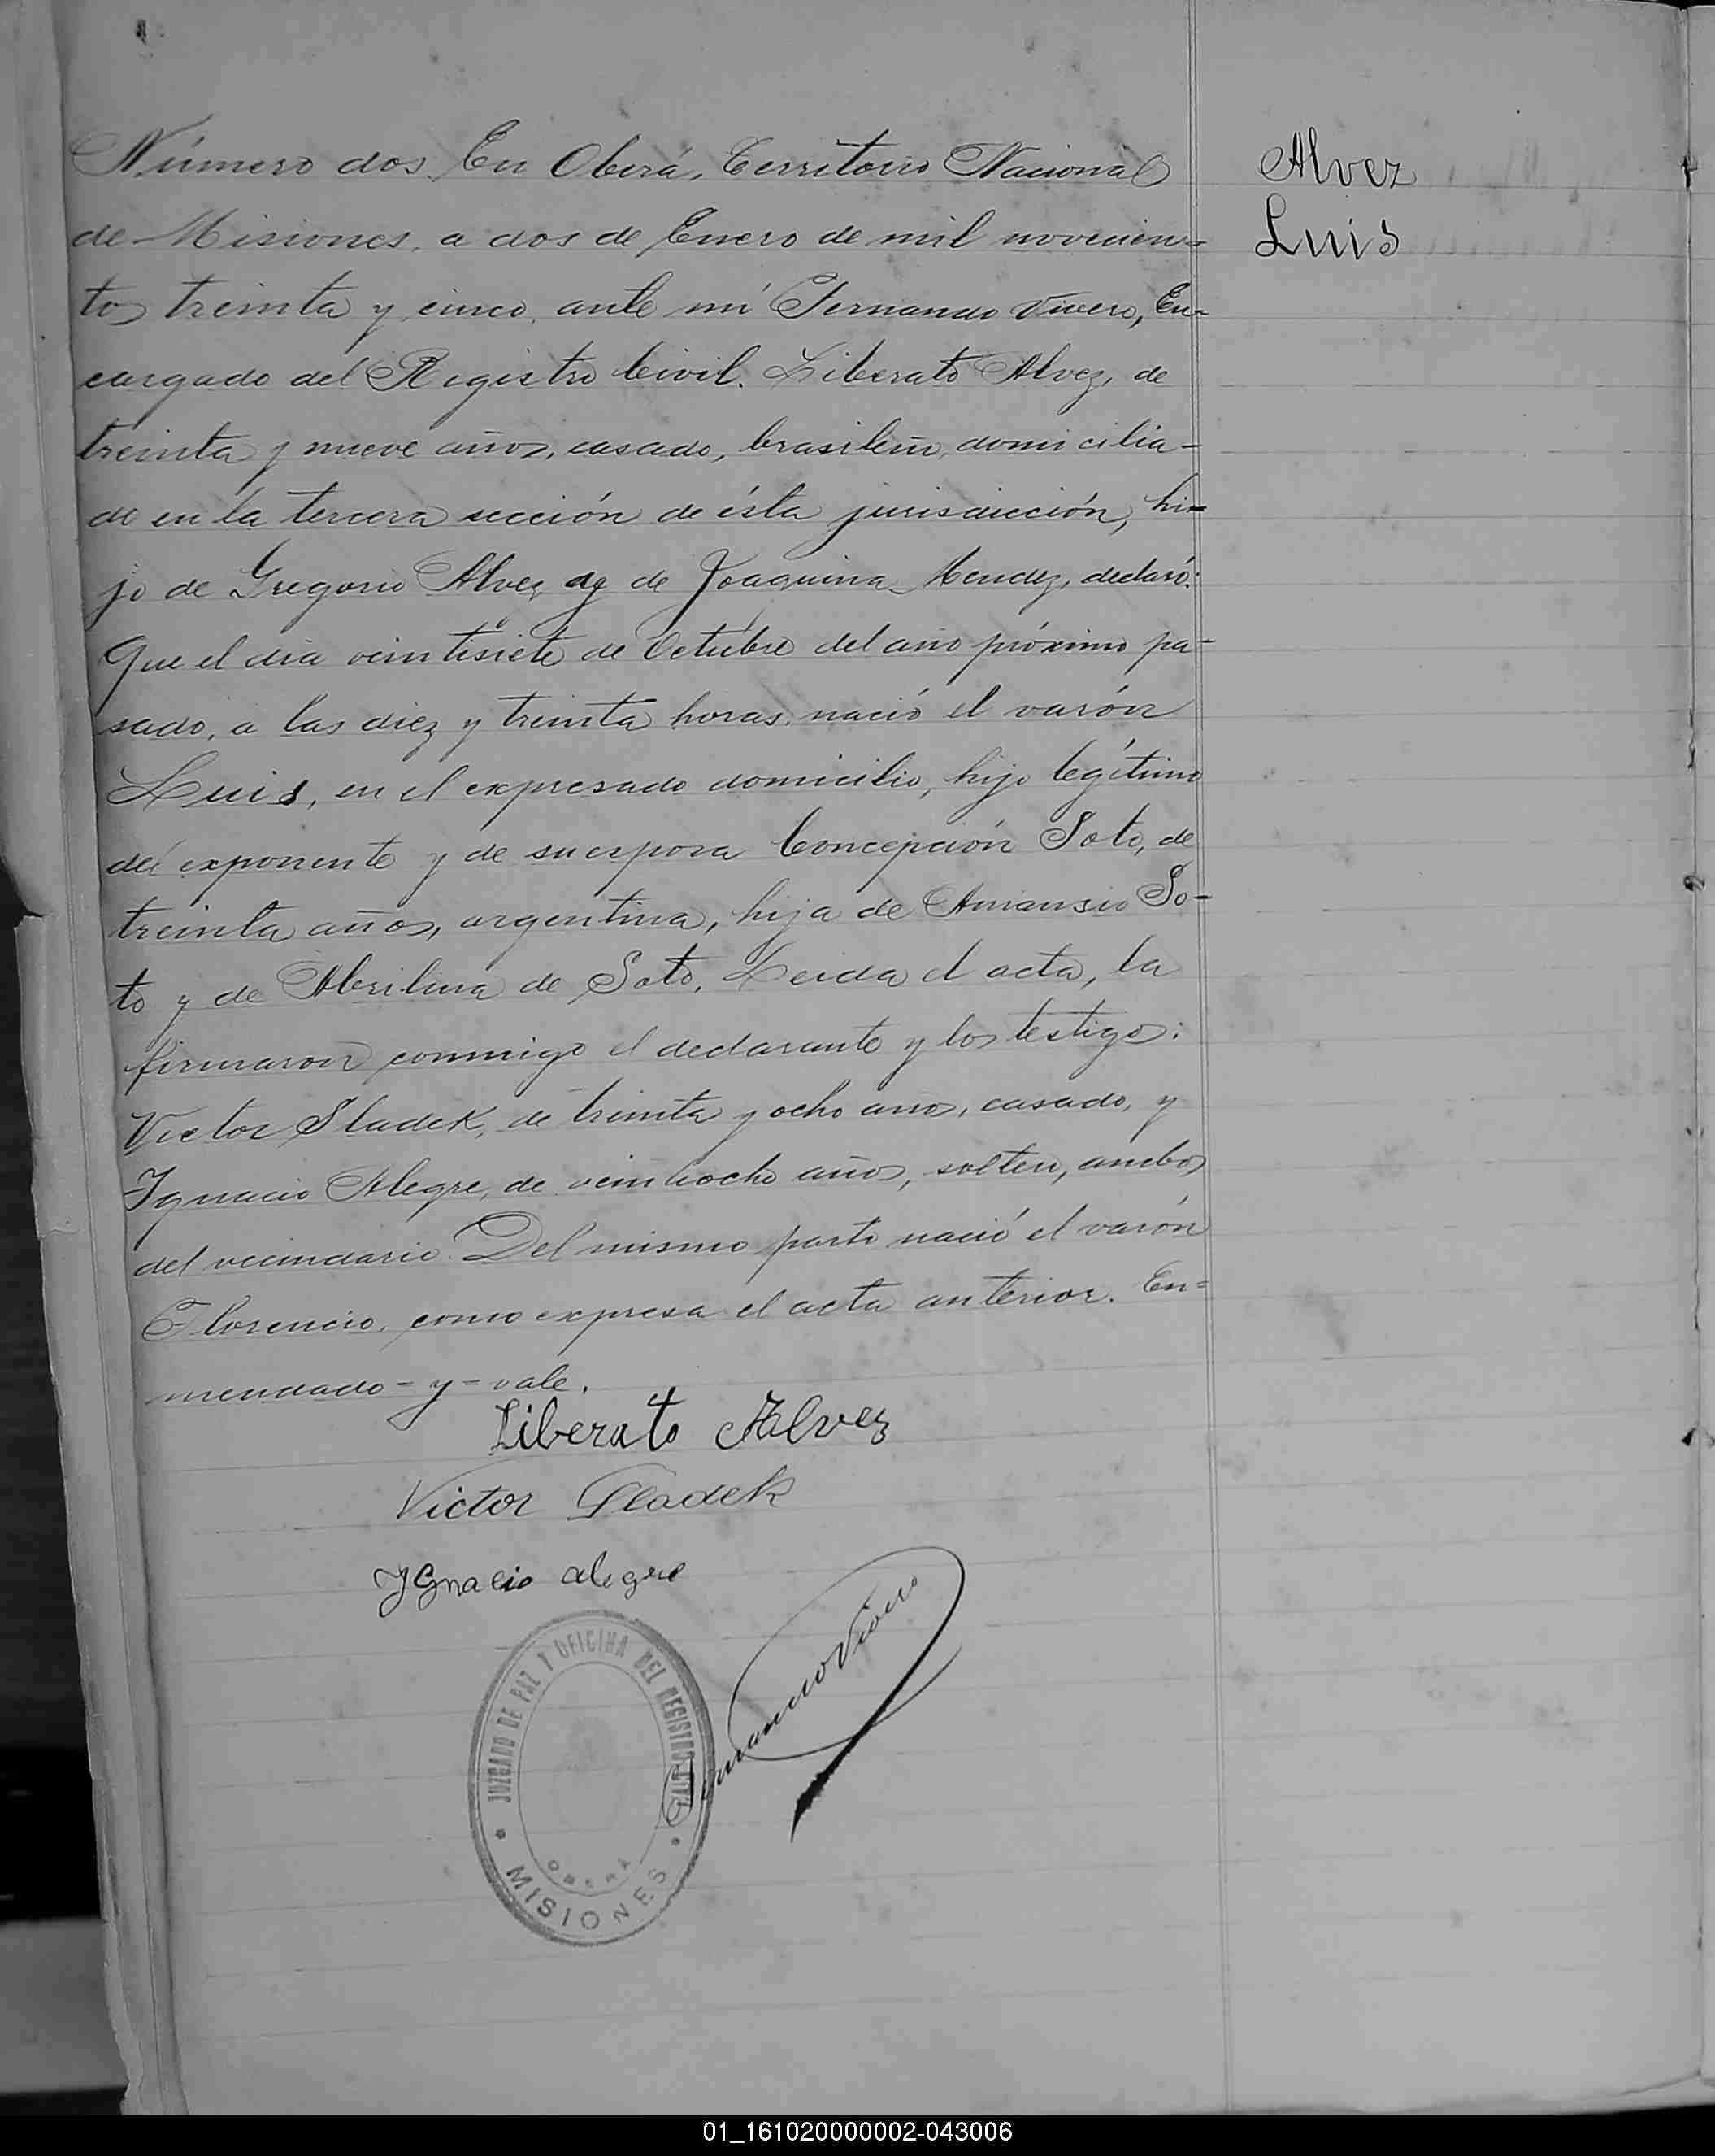 Número dos. En Oberá, Territorio Nacional
de Misiones, a dos de Enero de mil novecien=
tos treinta y cinco, ante mí Fernando Vivero, En-
cargado del Registro Civil. Liberato Alvez, de
treinta y nueve años, casado, brasileño, domicilia-
do en la tercera sección de ésta jurisdicción, hi=
jo de Gregorio Alvez y de Joaquina Mendez, declaró:
Que el dia veintisiete de Octubre del año próximo pa-
sado, a las diez y treinta horas nació el varón
Luis, en el expresado domicilio, hijo legítimo
del exponente y de su esposa Concepción Soto, de
treinta años, argentina, hija de Amansio So-
to y de de Soto. Leida el acta, la
firmaron conmigo el declarante y los testigos:
Victor Sladek, de treinta y ocho años, casado, y
Ignacio Alegre, de veintiocho años, soltero, ambos
del vecindario. Del mismo parto nació el varón
Florencio, como expresa el acta anterior. En=
mendado - y - vale.
Liberato Alvez
Victor Sladek
Ygnacio alegre
Fernando Vivero
JUZGADO DE PAZ Y OFICINA DEL REGISTRO CIVIL
OBERÁ
MISIONES
Alvez
Luis
01_161020000002-043006